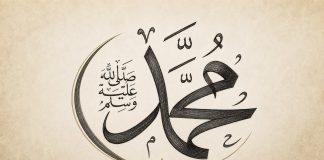 محمد
صَلَّى اللّٰه
عَلَيْهِ
وَسَلَّمَ